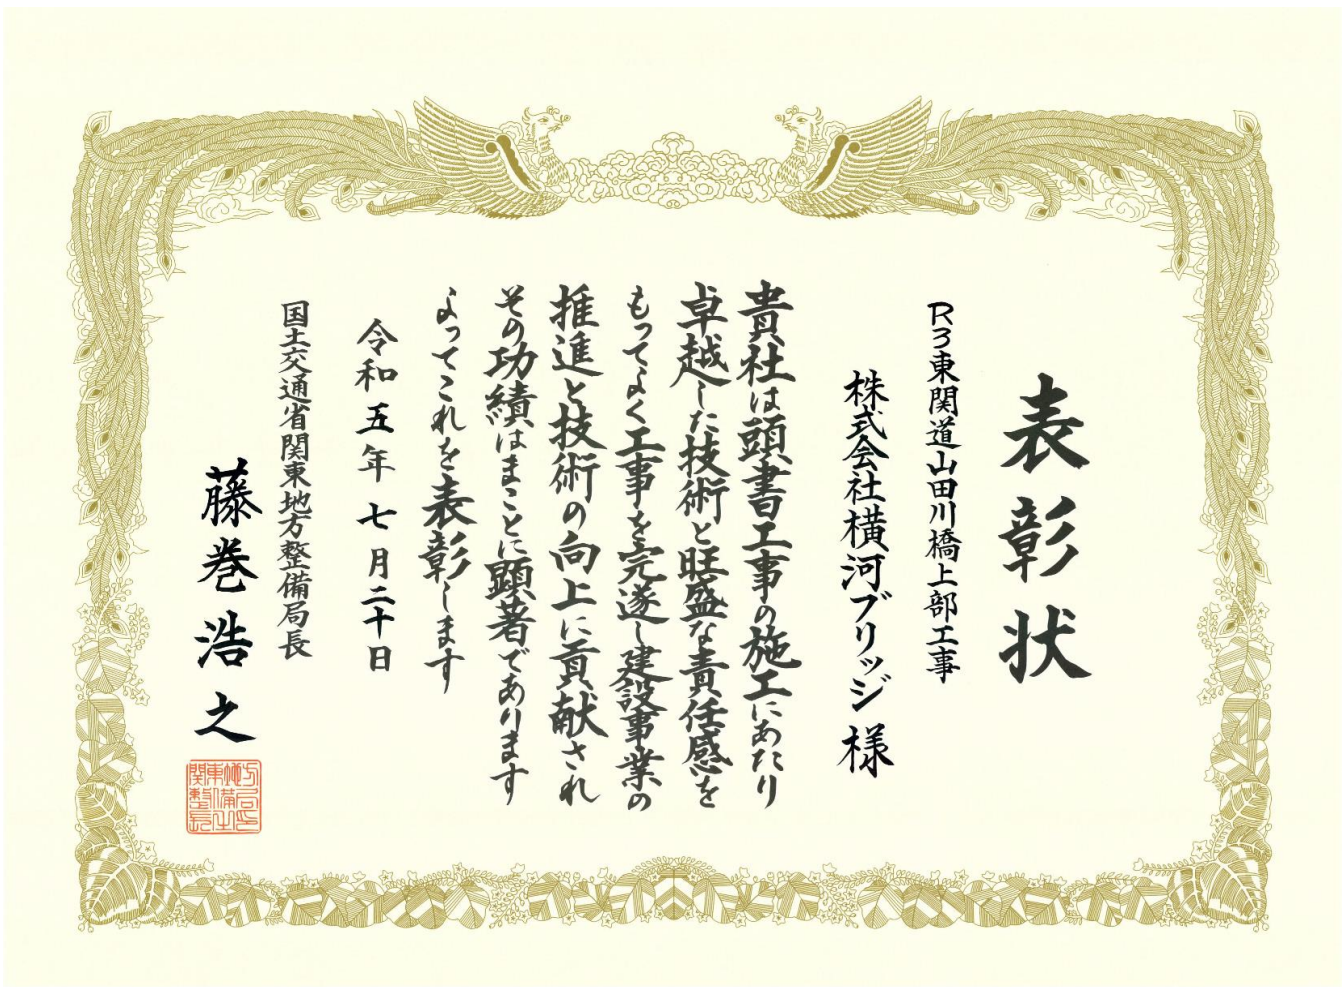 表彰状
R3東関道山田川橋上部工事
株式会社横河ブリッジ様
貴社は頭書工事の施工にあたり
卓越した技術と旺盛な責任感を
もってよく工事を完遂し建設事業の
推進と技術の向上に貢献され
その功績はまことに顕著であります
よってこれを表彰します
令和五年七月二十日
国土交通省関東地方整備局長
藤巻浩之